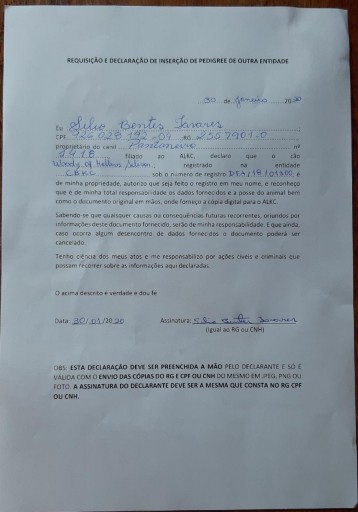 REQUISIÇÃO E DECLARAÇÃO DE INSERÇÃO DE PEDIGREE DE OUTRA ENTIDADE
30 de Janeiro 2020
Eu Silvio Bentes Tavares
CPF RG
proprietário do canil Pantaneiro nº
filiado ao ALKC, declaro que o cão
Woody of registrado na entidade
CBKC sob o número de registro e
de minha propriedade, autorizo que seja feito o registro em meu nome, e reconheço
que é de minha total responsabilidade os dados fornecidos e a posse do animal bem
como o documento original em mãos, onde forneço a cópia digital para o ALKC.
Sabendo-se que quaisquer causas ou consequências futuras recorrentes, oriundos por
informações deste documento fornecido, serão de minha responsabilidade. E que ainda,
caso ocorra algum desencontro de dados fornecidos o documento poderá ser
cancelado.
Tenho ciência dos meus atos e me responsabilizo por ações cíveis e criminais que
possam recorrer sobre as informações aqui declaradas.
O acima descrito e verdade e dou fé
Data: 30/01/2020 Assinatura:
(Igual ao RG ou CNH)
OBS: ESTA DECLARAÇÃO DEVE SER PREENCHIDA A MÃO PELO DECLARANTE E SÓ É
VÁLIDA COM O ENVIO DAS CÓPIAS DO RG E CPF OU CNH DO MESMO EM JPEG, PNG OU
FOTO. A ASSINATURA DO DECLARANTE DEVE SER A MESMA QUE CONSTA NO RG CPF
OU CNH.